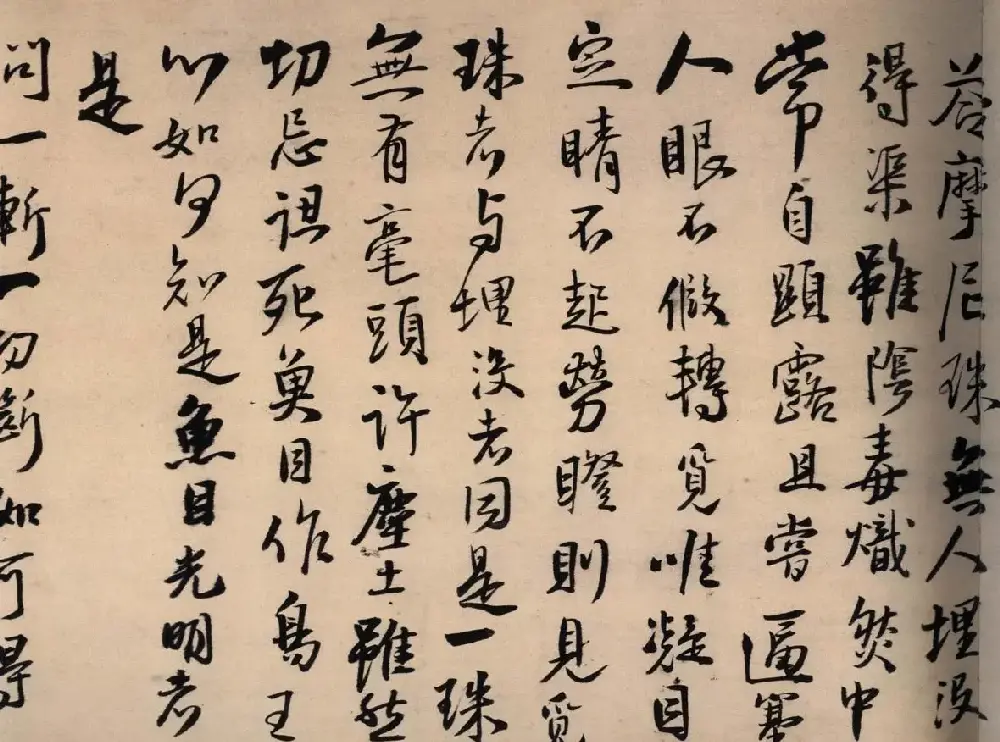 荅摩尼珠無人埋没
得渠雖陰毒熾然中
常自顯露且嘗逼塞
人眼不假轉覓唯凝目
定睛不起勞瞪則見覓
珠者与埋没者同是一珠
無有毫頭許塵土雖然
切忌認死魚目作王
如何知是魚目光明者
是
問一斬一切斷如何得